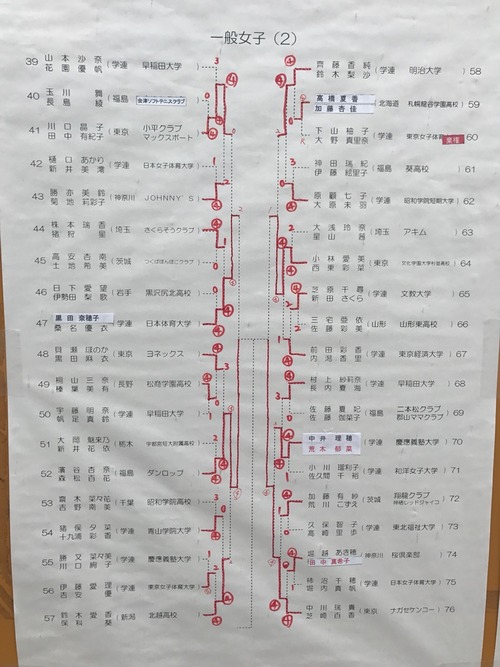 一般女子（2）
39 山本沙奈 花園優帆 (学連 早稲田大学)
40 玉川舞 長島綾 (福島 会津ソフトテニスクラブ)
41 川口晶子 田中有紀子 (東京 小平クラブ マックスポート)
42 樋口あかり 新井美澪 (学連 日本女子体育大学)
43 勝亦美鈴 菊池莉彩子 (神奈川 JOHNNY'S)
44 株本瑞香 猪狩里 (埼玉 さくらそうクラブ)
45 高安杏南 土地希美 (茨城 つくばぽんぽこクラブ)
46 日下愛望 伊勢田梨歌 (岩手 黒沢尻北高校)
47 黒田奈穂子 桑名優衣 (学連 日本体育大学)
48 貝瀬ほのか 黒田麻衣 (東京 ヨネックス)
49 細山三奈 榛葉美有 (長野 松商学園高校)
50 宇藤明奈 帆足真鈴 (学連 早稲田大学)
51 大岡魅来乃 新井花依 (栃木 宇都宮短大附属高校)
52 濱谷杏奈 森松百花 (福島 ダンロップ)
53 齋木菜々花 吉野南美 (千葉 昭和学院高校)
54 猪俣夕菜 十九浦彩香 (学連 青山学院大学)
55 勝又菜々美 川口絢子 (学連 慶應義塾大学)
56 伊藤愛理 吉安優 (学連 東京女子体育大学)
57 鈴木愛香 保科葵 (新潟 北越高校)
齋藤香純 鈴木梨沙 (学連 明治大学) 58
高橋夏香 加藤杏佳 (北海道 札幌龍谷学園高校) 59
下山柚子 大野真里奈 (学連 東京女子体育 棄権) 60
神田瑞紀 伊藤絵里子 (福島 葵高校) 61
原顧七子 大原未羽 (学連 昭和学院短期大学) 62
大浅玲奈 星山茜 (埼玉 アキム) 63
小林愛美 西東彩菜 (東京 文化学園大学杉並高校) 64
芝原千尋 新田さくら (学連 文教大学) 65
三宅亜依 佐藤彩美 (山形 山形商高校) 66
前田彩香 内潟香里 (学連 東京経済大学) 67
村上紗莉奈 長内夏海 (学連 早稲田大学) 68
佐藤夏妃 佐藤伽菜子 (福島 二本松クラブ 郡山ママクラブ) 69
中井理穂 荒木郁菜 (学連 慶應義塾大学) 70
小川瑠利子 佐久間千裕 (学連 和洋女子大学) 71
加藤有紗 荒川こずえ (茨城 翔龍クラブ 神栖レッドジャイコ) 72
久保智子 高崎里歩 (学連 東北福祉大学) 73
堀越あき穂 田中真希子 (神奈川 桜倶楽部) 74
柿沼千穂 堀内真帆 (学連 日本女子体育大学) 75
中川瑞貴 宮崎百香 (東京 ナガセケンコー) 76